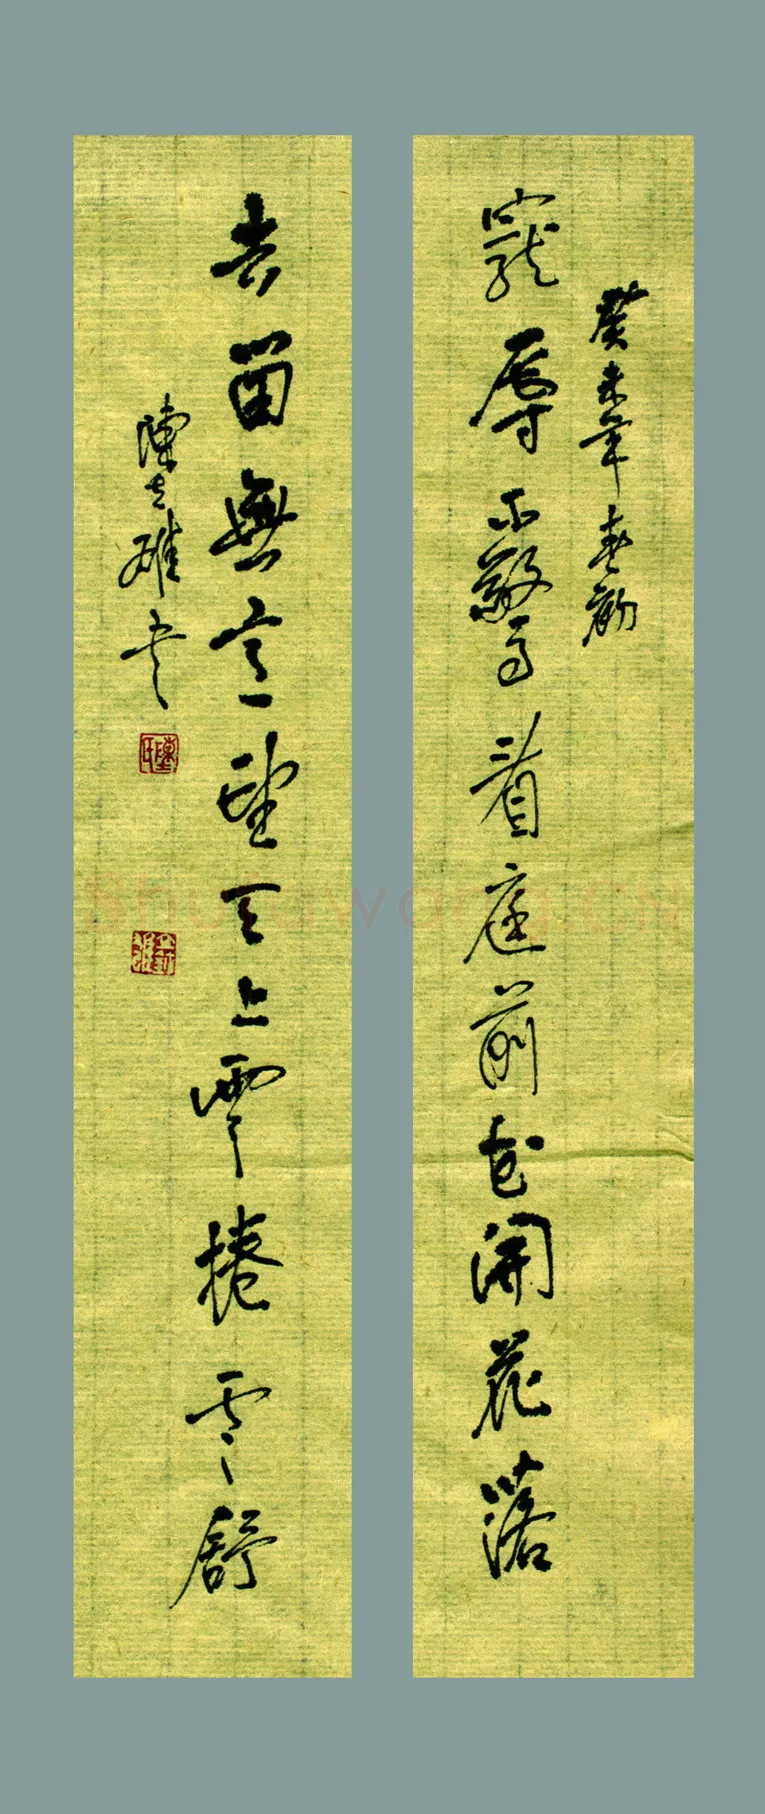 癸未年春
寵辱不驚看庭前花開花落
去留無意望天上雲捲雲舒
陳立雄書
Shufawang.CN